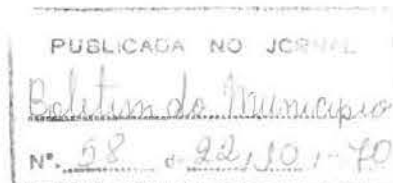 PUBLICADA NO JORNAL
Boletim do Municipio
Nº. 58 de 22/10/70